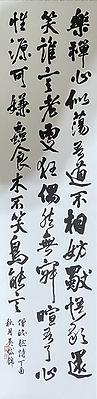 樂禪心似蕩吾道不相妨獨悟歌還
笑誰言老更狂偶然寂無喧吾了心
性源可嫌蟲食木不笑鳥能言
僧皎然 丁酉
秋月吳